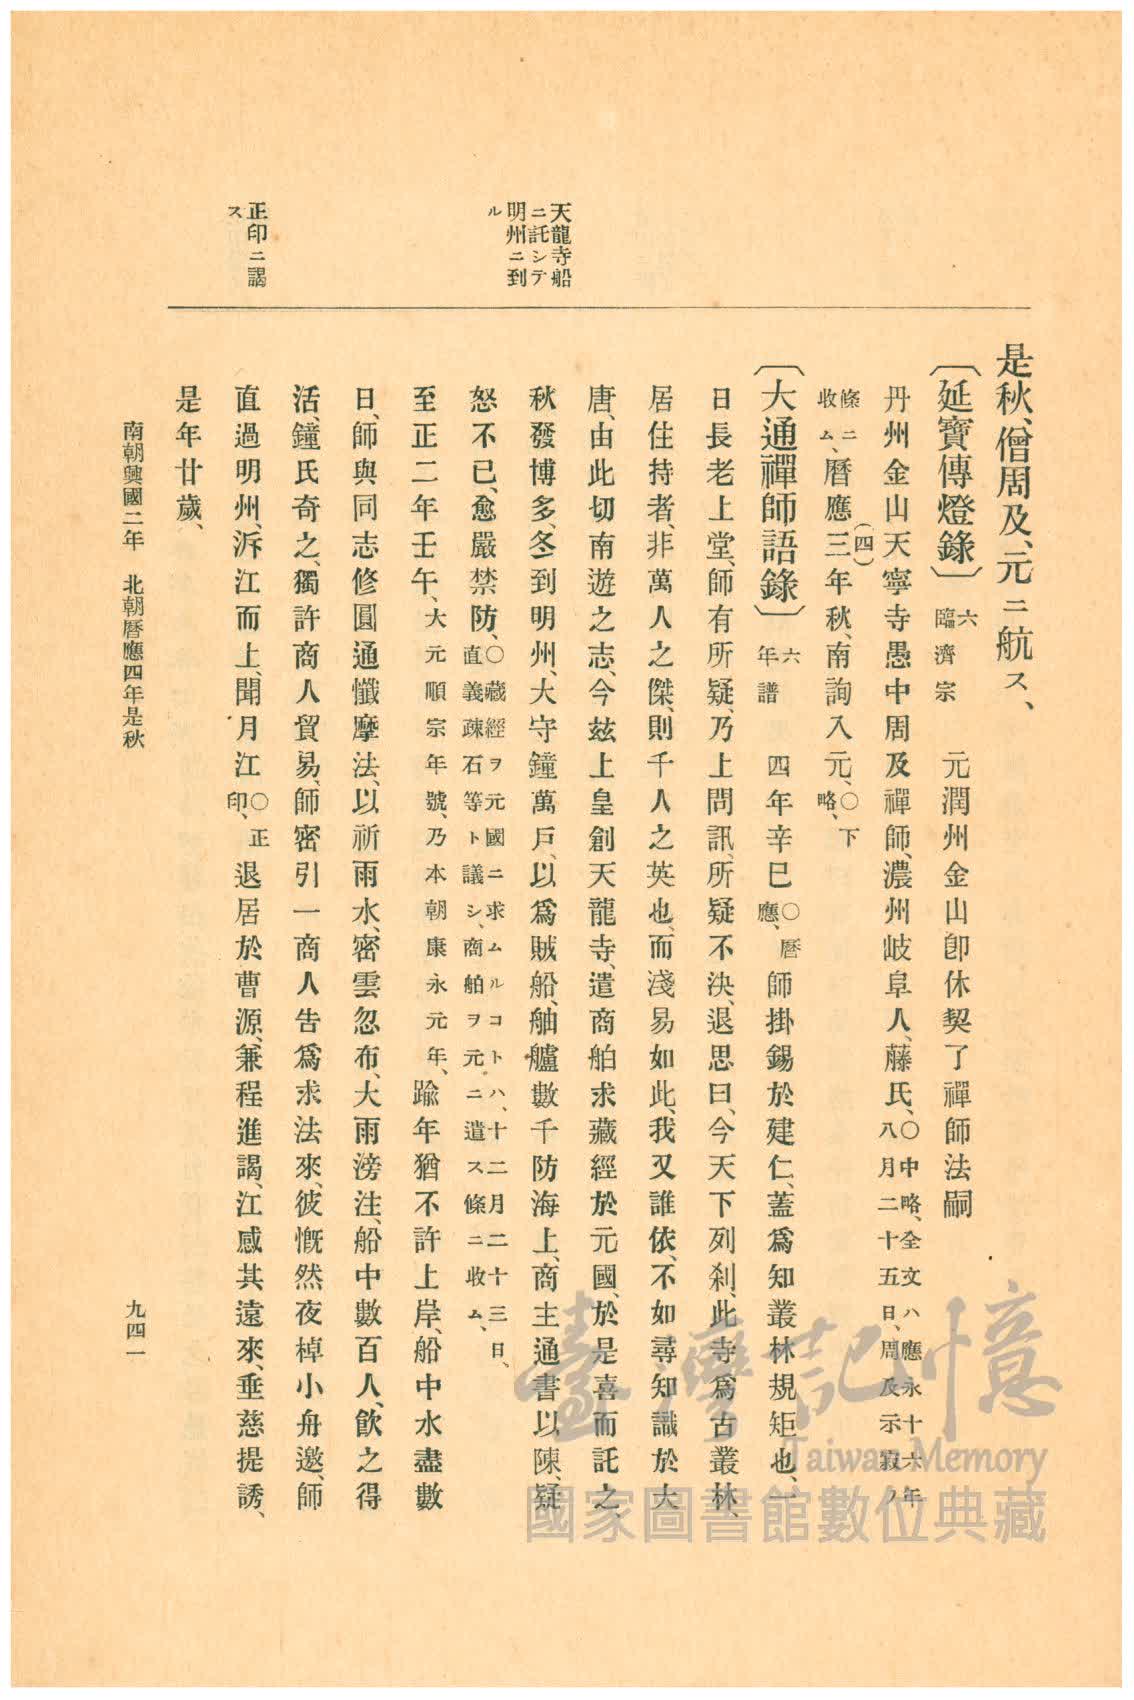 天龍寺船
ニ託シテ
明州ニ到
ル
正印ニ謁
ス
是秋、僧周及、元ニ航ス、
〔延寶傳燈錄〕六臨濟宗　元潤州金山卽休契了禪師法嗣
丹州金山天寧寺愚中周及禪師、濃州岐阜人、藤氏、〇中略、全文ハ應永十六年八月二十五日、周及示寂ノ
條ニ收ム、曆應三(四)年秋、南詢入元、〇下略、
〔大通禪師語錄〕六年譜　四年辛巳〇曆應、師掛錫於建仁、蓋爲知叢林規矩也、一
日長老上堂、師有所疑、乃上問訊、所疑不決、退思曰、今天下列刹、此寺爲古叢林、
居住持者、非萬人之傑、則千人之英也、而淺易如此、我又誰依、不如尋知識於大
唐、由此切南遊之志、今玆上皇創天龍寺、遣商舶求藏經於元國、於是喜而託之、
秋發博多、冬到明州、大守鐘萬戶、以爲賊船、舳艫數千防海上、商主通書以陳、疑
怒不已、愈嚴禁防、〇藏經ヲ元國ニ求ムルコトハ、十二月二十三日、直義疎石等ト議シ、商舶ヲ元ニ遣ス條ニ收ム、
至正二年壬午、大元順宗年號、乃本朝康永元年、踰年猶不許上岸、船中水盡數
日、師與同志修圓通懺摩法、以祈雨水、密雲忽布、大雨滂注、船中數百人、飮之得
活、鐘氏奇之、獨許商人貿易、師密引一商人告爲求法來、彼慨然夜棹小舟邀、師
直過明州、泝江而上、聞月江〇正印、退居於曹源、兼程進謁、江感其遠來、垂慈提誘、
是年廿歲、
南朝興國二年　北朝曆應四年是秋
九四一
臺灣記憶
Taiwan Memory
國家圖書館數位典藏